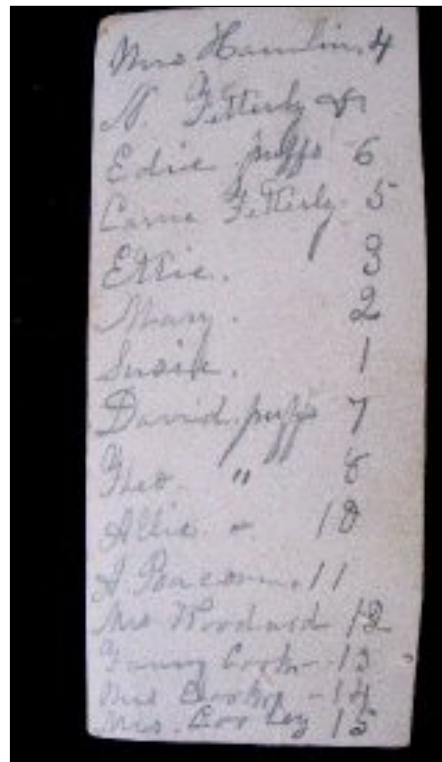 Mrs Hamlin. 4
N. Fetterly
Edie puffs 6
Carrie Fetterly. 5
Ettie. 3
Mary. 2
Susie. 1
David puffs 7
Theo. " 8
Allie " 10
A Beacom. 11
Mrs Woodard 12
Fanny Cook - 13
Mrs - 14
Mrs. Cooley 15